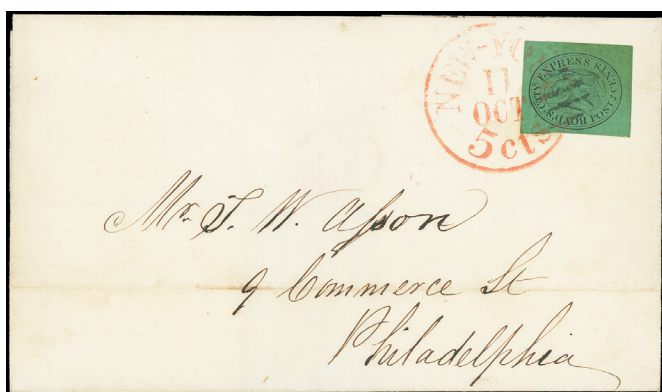 NEW-YO
11
OCT
5 cts
BOYD'S CITY EXPRESS POST 2 CENTS
Mr. T. W.
9 Commerce St
Philadelphia